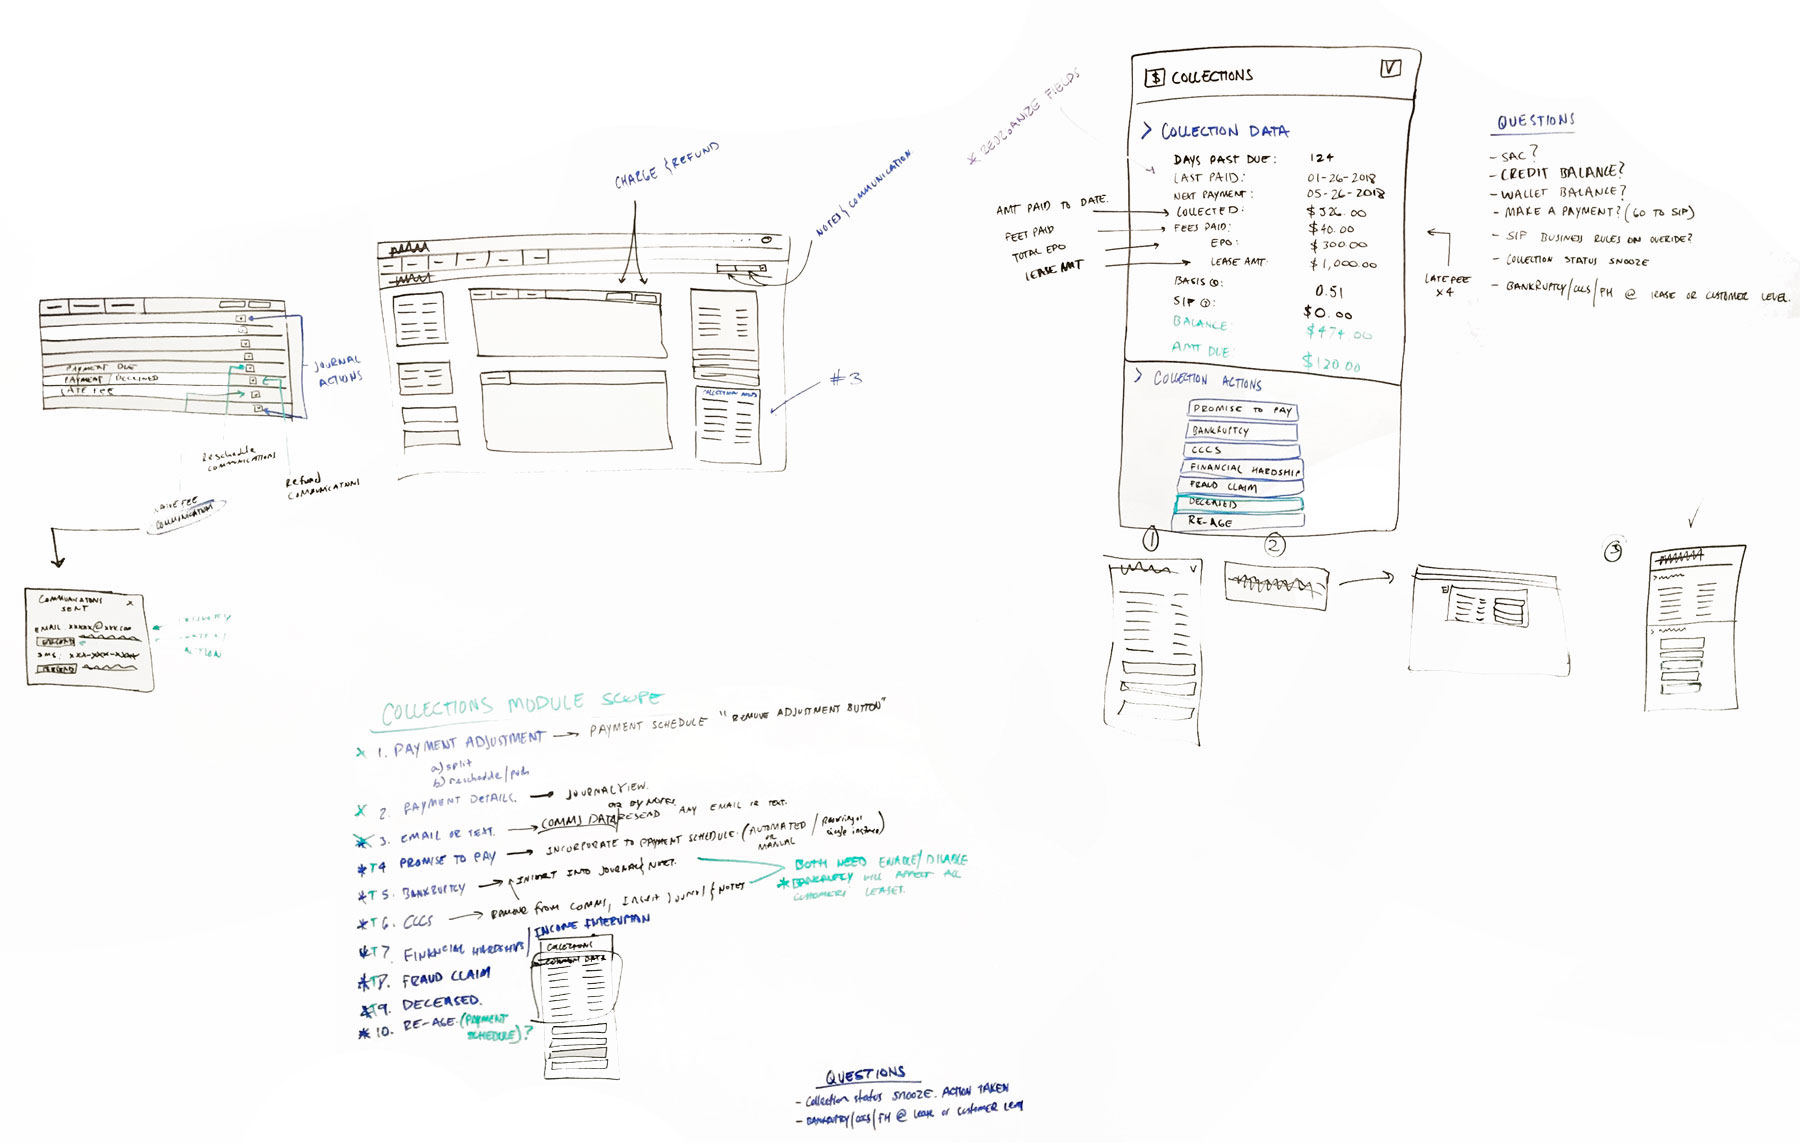 CHARGE & REFUND
NOTES & COMMUNICATION
#3
COLLECTION
PAYMENT DUE
PAYMENT DECLINED
LATE FEE
JOURNAL
ACTIONS
Reschedule
COMMUNICATIONS
Refund
COMMUNICATIONS
FEE
COMMUNICATION
COMMUNICATIONS
SENT
X
EMAIL: xxxxx@xxx.com
RESEND
SMS: xxx-xxx-xxxx
RESEND
ACTION
* REORGANIZE FIELDS
$ COLLECTIONS
V
> COLLECTION DATA
DAYS PAST DUE: 124
LAST PAID: 01-26-2018
NEXT PAYMENT: 05-26-2018
COLLECTED: $326.00
FEES PAID: $40.00
EPO: $300.00
LEASE AMT: $1,000.00
BASIS ①: 0.51
SIP ①: $0.00
BALANCE: $474.00
AMT DUE: $120.00
AMT PAID TO DATE.
FEES PAID
TOTAL EPO
LEASE AMT
LATE FEE
x4
> COLLECTION ACTIONS
PROMISE TO PAY
BANKRUPTCY
CCCS
FINANCIAL HARDSHIP
FRAUD CLAIM
DECEASED
RE-AGE
QUESTIONS
- SAC?
- CREDIT BALANCE?
- WALLET BALANCE?
- MAKE A PAYMENT? (GO TO SIP)
- SIP BUSINESS RULES ON OVERIDE?
- COLLECTION STATUS SNOOZE
- BANKRUPTCY/CCCS/FH @ LEASE OR CUSTOMER LEVEL.
①
②
③
V
COLLECTIONS MODULE SCOPE
X 1. PAYMENT ADJUSTMENT → PAYMENT SCHEDULE "REMOVE ADJUSTMENT BUTTON"
a) split
b) reschedule/push
X 2. PAYMENT DETAILS. → JOURNAL VIEW.
OR BY NOTES.
* 3. EMAIL OR TEXT. → COMMS DATA/RESEND ANY EMAIL OR TEXT.
*T4 PROMISE TO PAY → INCORPORATE TO PAYMENT SCHEDULE. (AUTOMATED OR MANUAL / Recurring or single instance)
*T5. BANKRUPTCY → INSERT INTO JOURNAL & NOTES.
*T6. CCCS → REMOVE FROM COMMS, INSERT JOURNAL & NOTES
BOTH NEED ENABLE/DISABLE
* BANKRUPTCY WILL AFFECT ALL
CUSTOMERS' LEASES.
*T7. FINANCIAL HARDSHIPS/INCOME INTERRUPTION
*T8. FRAUD CLAIM
*T9. DECEASED.
* 10. RE-AGE. (PAYMENT
SCHEDULE)?
COLLECTIONS
COMMON DATA
QUESTIONS
- Collection status SNOOZE. ACTION TAKEN
- BANKRUPTCY/CCCS/FH @ LEASE or CUSTOMER LEVEL